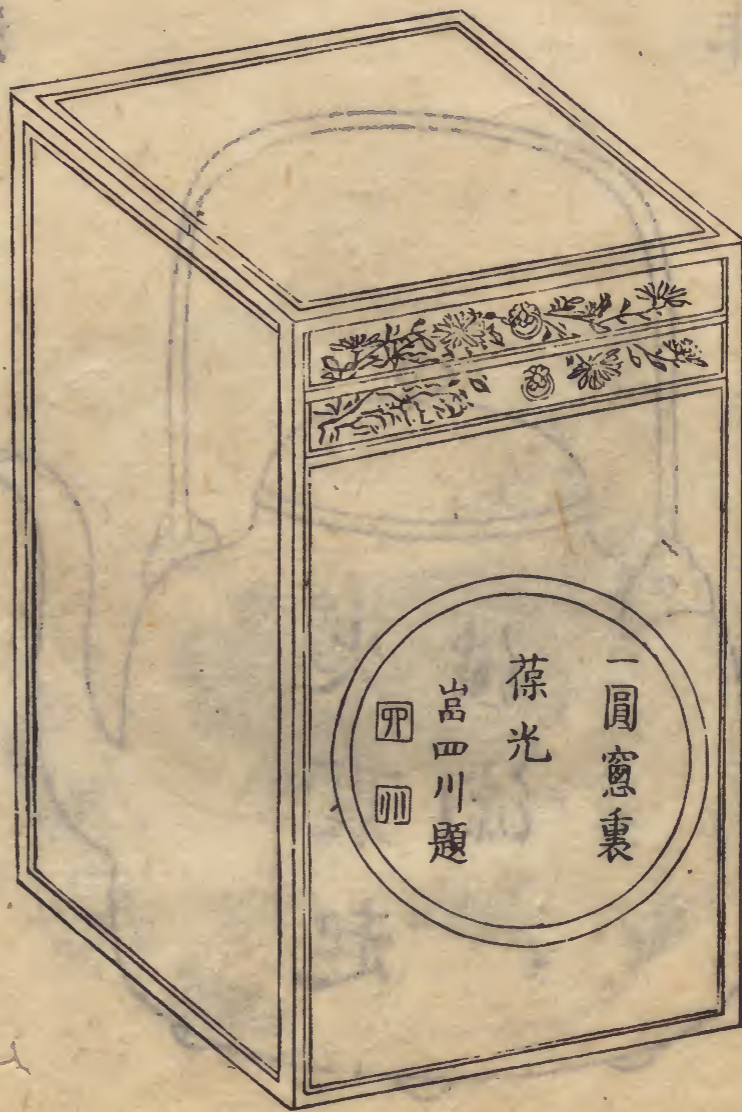 一圓窻裏
葆光
岩四川題